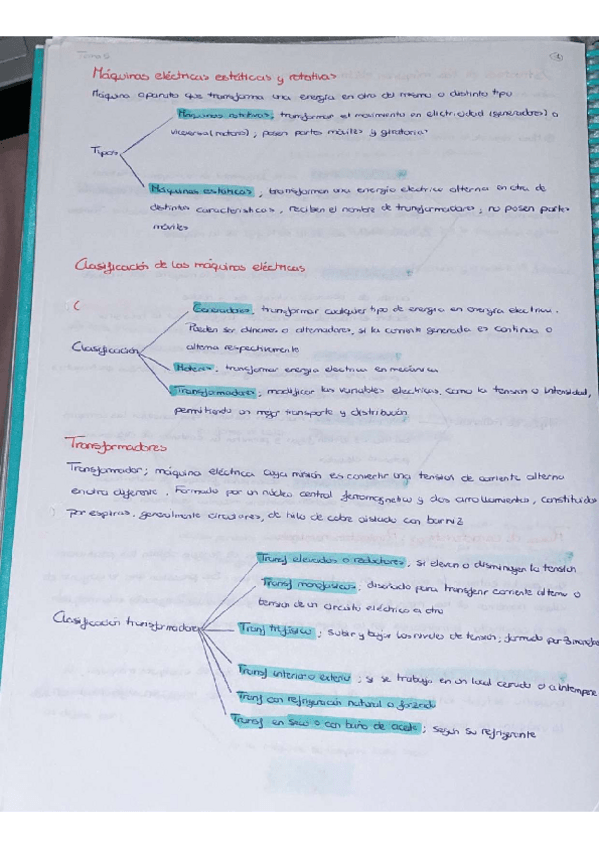 Tema 5
1
Máquinas eléctricas estáticas y rotativas
Máquina aparato que transforma una energía en otra del mismo o distinto tipo
Máquinas rotativas, transforman el movimiento en electricidad (generadores) o
viceversa (motores); poseen partes móviles y giratorias
Tipos
Máquinas estáticas, transforman una energía eléctrica alterna en otra de
distintas características, reciben el nombre de transformadores; no poseen partes
móviles
Clasificación de las máquinas eléctricas
Generadores, transforman cualquier tipo de energía en energía eléctrica.
Pueden ser dinamos o alternadores, si la corriente generada es continua o
alterna respectivamente
Clasificación
Motores, transforman energía eléctrica en mecánica
Transformadores; modifican las variables electricas, como la tension o intensidad,
permitiendo un mejor transporte y distribución
Transformadores
Transformador; máquina eléctrica cuya misión es convertir una tension de corriente alterna
en otra diferente. Formado por un núcleo central ferromagnetico y dos arrollamientos, constituidos
por espiras, generalmente circulares, de hilo de cobre aislado con barniz
Transf elevadores o reductores, si elevan o disminuyen la tensión
Transf monofasicos; diseñado para transferir corriente alterna o
tension de un circuito eléctrico a otro
Clasificación transformadores
Transf trifásico; subir y bajar los niveles de tensión; formado por 3 monofas
Transf interior o exterior; si se trabaja en un local cerrado o a intemperie
Transf con refrigeración natural o forzada
Transf en seco o con baño de aceite; según su refrigerante